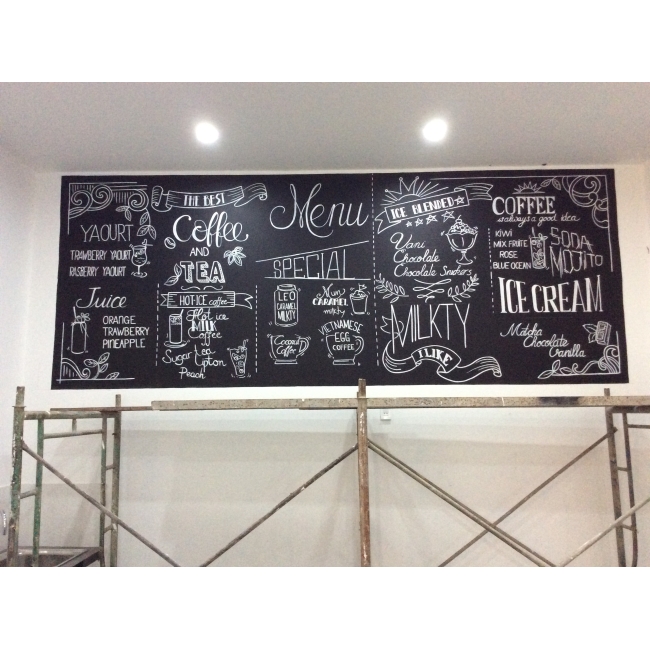 YAOURT
TRAWBERRY YAOURT
RASBERRY YAOURT
Juice
ORANGE
TRAWBERRY
PINEAPPLE
THE BEST
Coffee
AND
TEA
HOT-ICE coffee
Hot ice
MILK
Coffee
Sugar Tea
Lipton
Peach
Menu
SPECIAL
LEO
CARAMEL
MILKTY
CARAMEL
milkty
Coconut
Coffee
VIETNAMESE
EGG
COFFEE
ICE BLENDED
Vani
Chocolate
Chocolate Snickers
MILKTY
I LIKE
COFFEE
is always a good idea
KIWI
MIX FRUITE
ROSE
BLUE OCEAN
SODA
MOJITO
ICE CREAM
Matcha
Chocolate
Vanilla